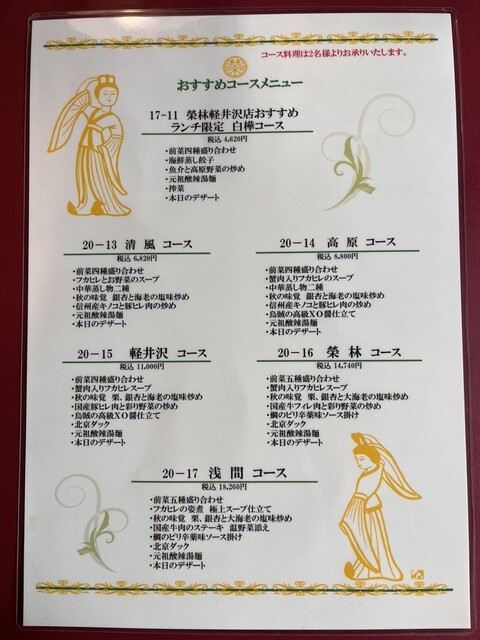 コース料理は2名様よりお承りいたします。
おすすめコースメニュー
17-11 榮林軽井沢店おすすめ
ランチ限定 白樺コース
税込 4,620円
・前菜四種盛り合わせ
・海鮮蒸し餃子
・魚介と高原野菜の炒め
・元祖酸辣湯麺
・搾菜
・本日のデザート
20－13 清風 コース
税込 6,820円
・前菜四種盛り合わせ
・フカヒレとお野菜のスープ
・中華蒸し物二種
・秋の味覚 銀杏と海老の塩味炒め
・信州産キノコと豚ヒレ肉の炒め
・元祖酸辣湯麺
・本日のデザート
20－14 高原 コース
税込 8,800円
・前菜四種盛り合わせ
・蟹肉入りフカヒレのスープ
・中華蒸し物二種
・秋の味覚 銀杏と海老の塩味炒め
・信州産キノコと豚ヒレ肉の炒め
・烏賊の高級XO醤仕立て
・元祖酸辣湯麺
・本日のデザート
20－15 軽井沢 コース
税込 11,000円
・前菜四種盛り合わせ
・蟹肉入りフカヒレスープ
・秋の味覚 栗、銀杏と海老の塩味炒め
・国産豚ヒレ肉と彩り野菜の炒め
・烏賊の高級XO醤仕立て
・北京ダック
・元祖酸辣湯麺
・本日のデザート
20－16 榮林 コース
税込 14,740円
・前菜五種盛り合わせ
・蟹肉入りフカヒレスープ
・秋の味覚 栗、銀杏と大海老の塩味炒め
・国産牛フィレ肉と彩り野菜の炒め
・鯛のピリ辛薬味ソース掛け
・北京ダック
・元祖酸辣湯麺
・本日のデザート
20－17 浅間 コース
税込 18,260円
・前菜五種盛り合わせ
・フカヒレの姿煮 極上スープ仕立て
・秋の味覚 栗、銀杏と大海老の塩味炒め
・国産牛肉のステーキ 温野菜添え
・鯛のピリ辛薬味ソース掛け
・北京ダック
・元祖酸辣湯麺
・本日のデザート